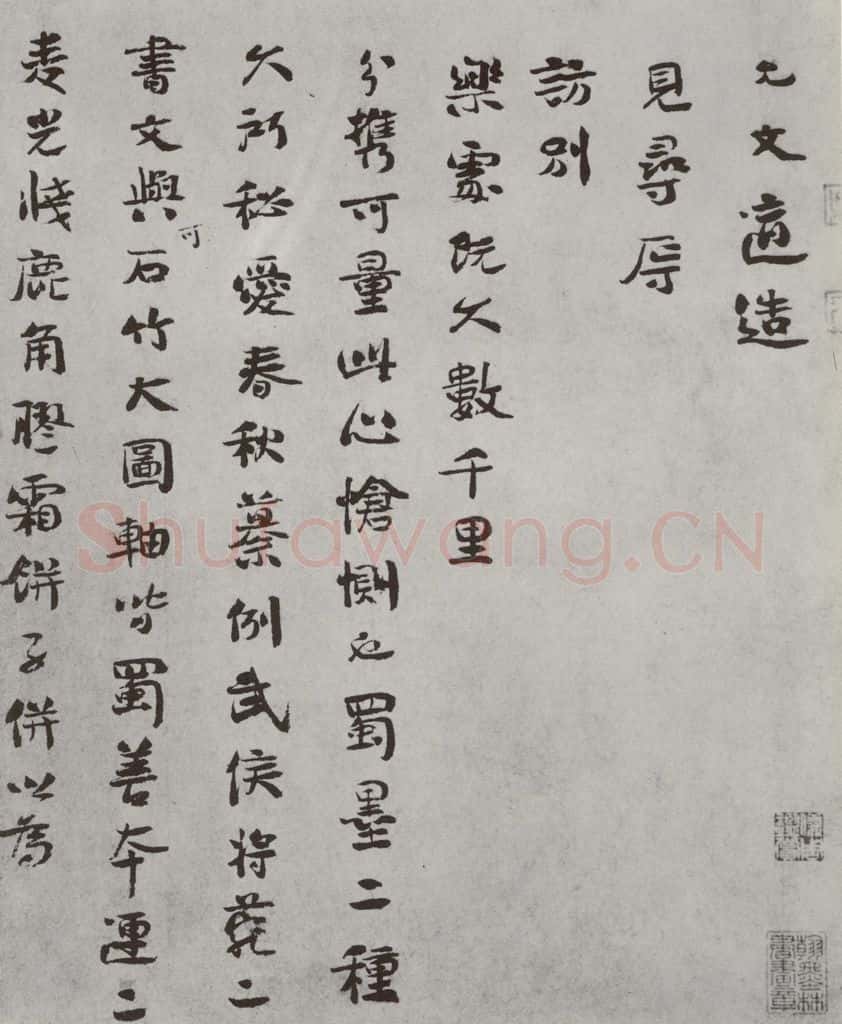 允文適造
見尋辱
訪別
樂處既久數千里
分攜可量此心愴惻也蜀墨二種
久所秘愛春秋纂例武侯將苑二
書文與可石竹大圖軸皆蜀善本運二
麥光牋鹿角膠霜餅子併以薦
翰墨林書畫章
Shufawang.CN